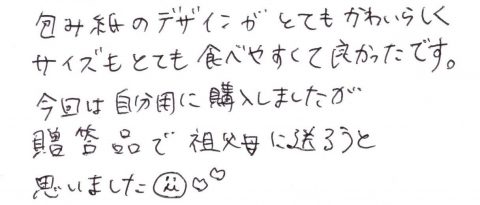 包み紙のデザインがとてもかわいらしく
サイズもとても食べやすくて良かったです。
今回は自分用に購入しましたが
贈答品で祖父母に送ろうと
思いました☺♡♡